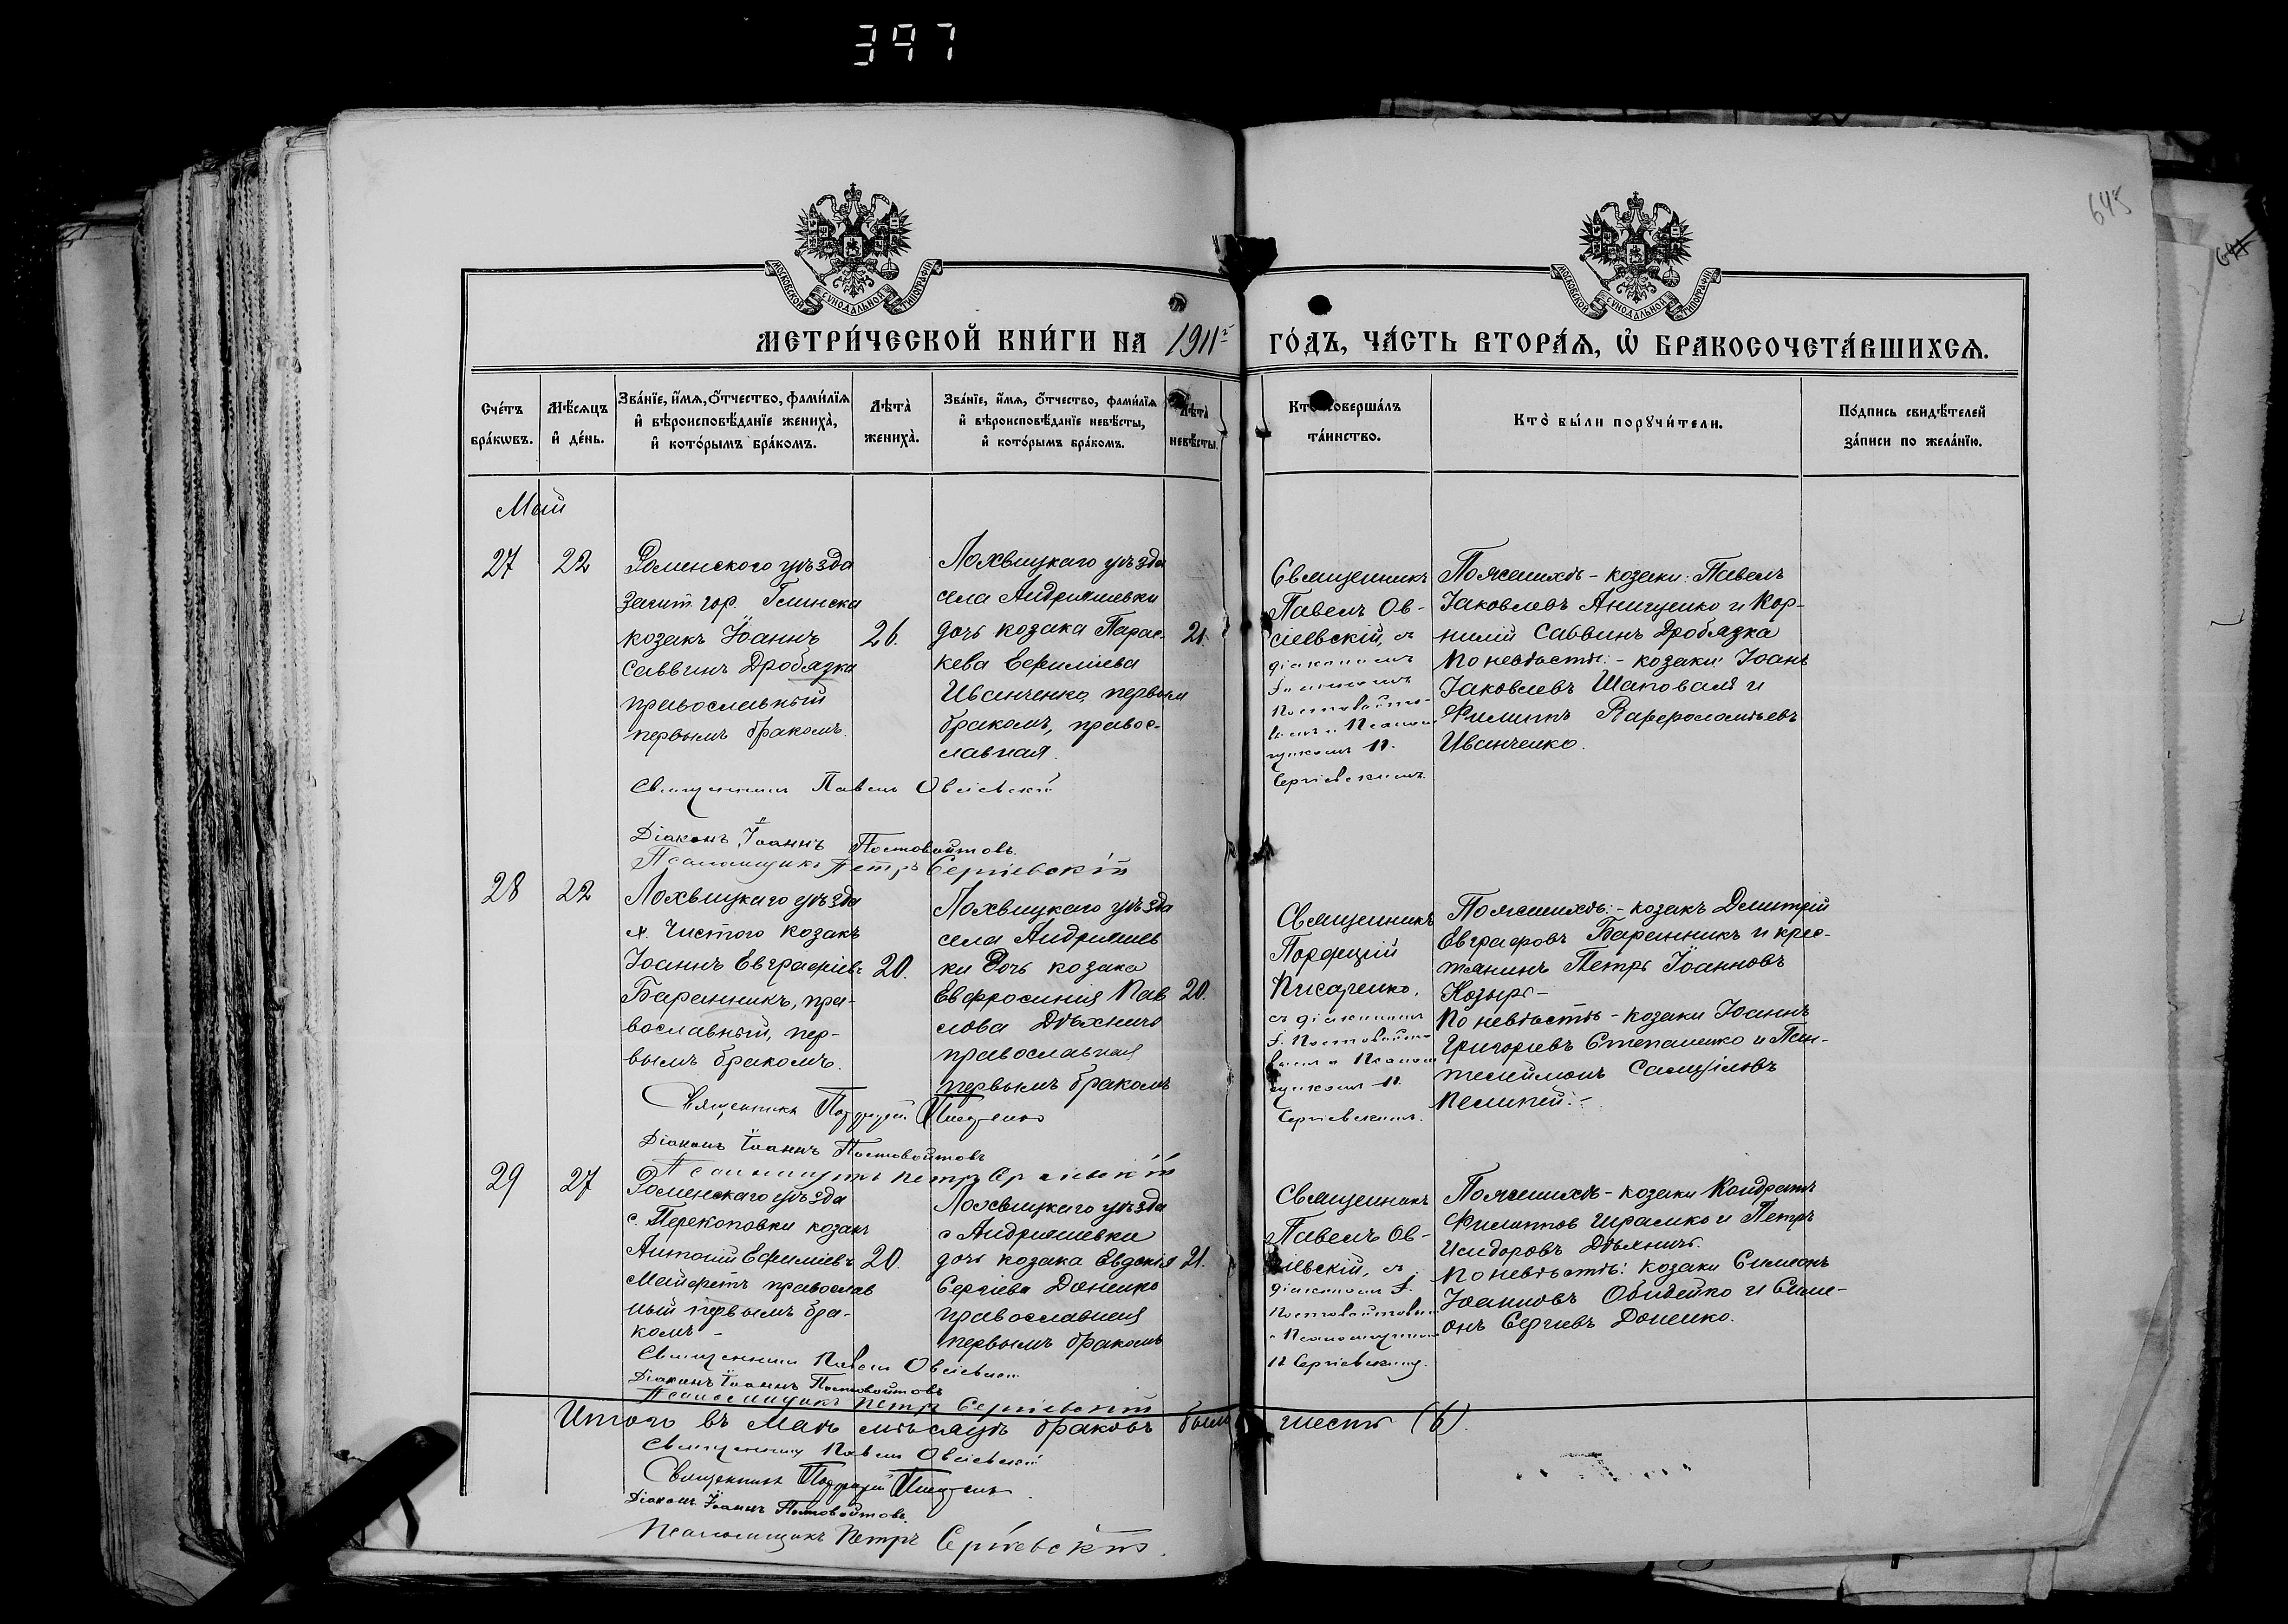 397
645
МОСКОВСКОЙ СУНОДАЛЬНОЙ ТИПОГРАФІИ
МОСКОВСКОЙ СУНОДАЛЬНОЙ ТИПОГРАФІИ
МЕТРИ́ЧЕСКОЙ КНИ́ГИ НА 1911г
ГО́ДЪ, ЧА́СТЬ ВТОРА́Ѧ, Ѽ БРАКОСОЧЕТА́ВШИХСѦ.
Сче́тъ бра́кѡвъ.
Мѣ́сѧцъ и҆ де́нь.
Зва́нїе, и҆́мѧ, ѻ҆́тчество, фами́лїѧ и҆ вѣроисповѣ́данїе жениха̀, и҆ кото́рымъ бра́комъ.
Лѣ́та̀ жениха̀.
Зва́нїе, и҆́мѧ, ѻ҆́тчество, фами́лїѧ и҆ вѣроисповѣ́данїе невѣ́сты, и҆ кото́рымъ бра́комъ.
Лѣ́та̀ невѣ́сты.
Кто̀ соверша́лъ та́инство.
Кто̀ бы́ли порꙋчи́тели.
По́дпись свидѣ́телей за́писи по жела́нїю.
Май
27
22
Роменскаго уѣзда
зашт. гор. Глинска
козакъ Іоаннъ
Саввинъ Дробязка
православный
первымъ бракомъ.
26.
Лохвицкаго уѣзда
села Андріяшевки
дочь козака Парас-
кева Ефиміева
Иванченко, первым
бракомъ, правос-
лавная.
21.
Священникъ
Павелъ Ов-
сіевскій, съ
діакономъ
І.
Постовойто-
вымъ и Псалом
щикомъ П.
Сергіевскимъ.
По женихѣ - козаки: Павелъ
Іаковлевъ Анищенко и Кор-
нилій Саввинъ Дробязка
По невѣстѣ: - козаки: Іоанъ
Іаковлевъ Шаповалъ и
Филиппъ Варфоломѣевъ
Иванченко.
Священникъ Павелъ Овсіевскій
Діаконъ Іоаннъ Постовойтовъ.
Псаломщикъ Петръ Сергіевскій
28
22
Лохвицкаго уѣзда
х. Чистого козакъ
Іоаннъ Евграфіевъ
Баранникъ, пра-
вославный, пер-
вымъ бракомъ.
20.
Лохвицкаго уѣзда
села Андріяшев
ки дочь козака
Евфросинія Пав
лова Дѣхничъ
православная
первымъ бракомъ
20.
Священникъ
Порфирій
Писаренко,
съ діакономъ
І. Постовойто
вымъ и Псалом
щикомъ П.
Сергіевскимъ.
По женихѣ: - козакъ Димитрій
Евграфовъ Баранникъ и крес-
тянинъ Петръ Іоанновъ
Козырь -
По невѣстѣ - козаки Іоаннъ
Григоріевъ Степаненко и Пан-
телеймонъ Самуиловъ
Пелипей. -
Священникъ Порфирій Писаренко
Діаконъ Іоаннъ Постовойтовъ
Псаломщикъ Петръ Сергіевскій
29
27
Роменскаго уѣзда
с. Перекоповки козакъ
Антоній Ефиміевъ
православ
ный первымъ бра-
комъ -
20.
Лохвицкаго уѣзда
с Андріяшевки
дочь козака Евдокія
Сергіева Доненко
православная
первымъ бракомъ
21.
Священникъ
Павелъ Ов-
сіевскій, съ
діакономъ І.
Постовойтовым
и Псаломщиком
П Сергіевскимъ.
По женихѣ - козаки Кондратъ
Филиппов Шрамко и Петръ
Исидоровъ
По невѣстѣ: козаки Симеонъ
Іоанновъ Обидейко и Симе-
онъ Сергіевъ Доненко.
Священникъ Павелъ Овсіевскій
Діаконъ Іоаннъ Постовойтовъ
Псаломщикъ Петръ Сергіевскій
Итого въ Маѣ мѣсяцѣ браковъ было шесть (6).
Священникъ Павелъ Овсіевскій
Священникъ Порфирій Писаренко
Діаконъ Іоаннъ Постовойтовъ.
Псаломщикъ Петръ Сергіевскій.